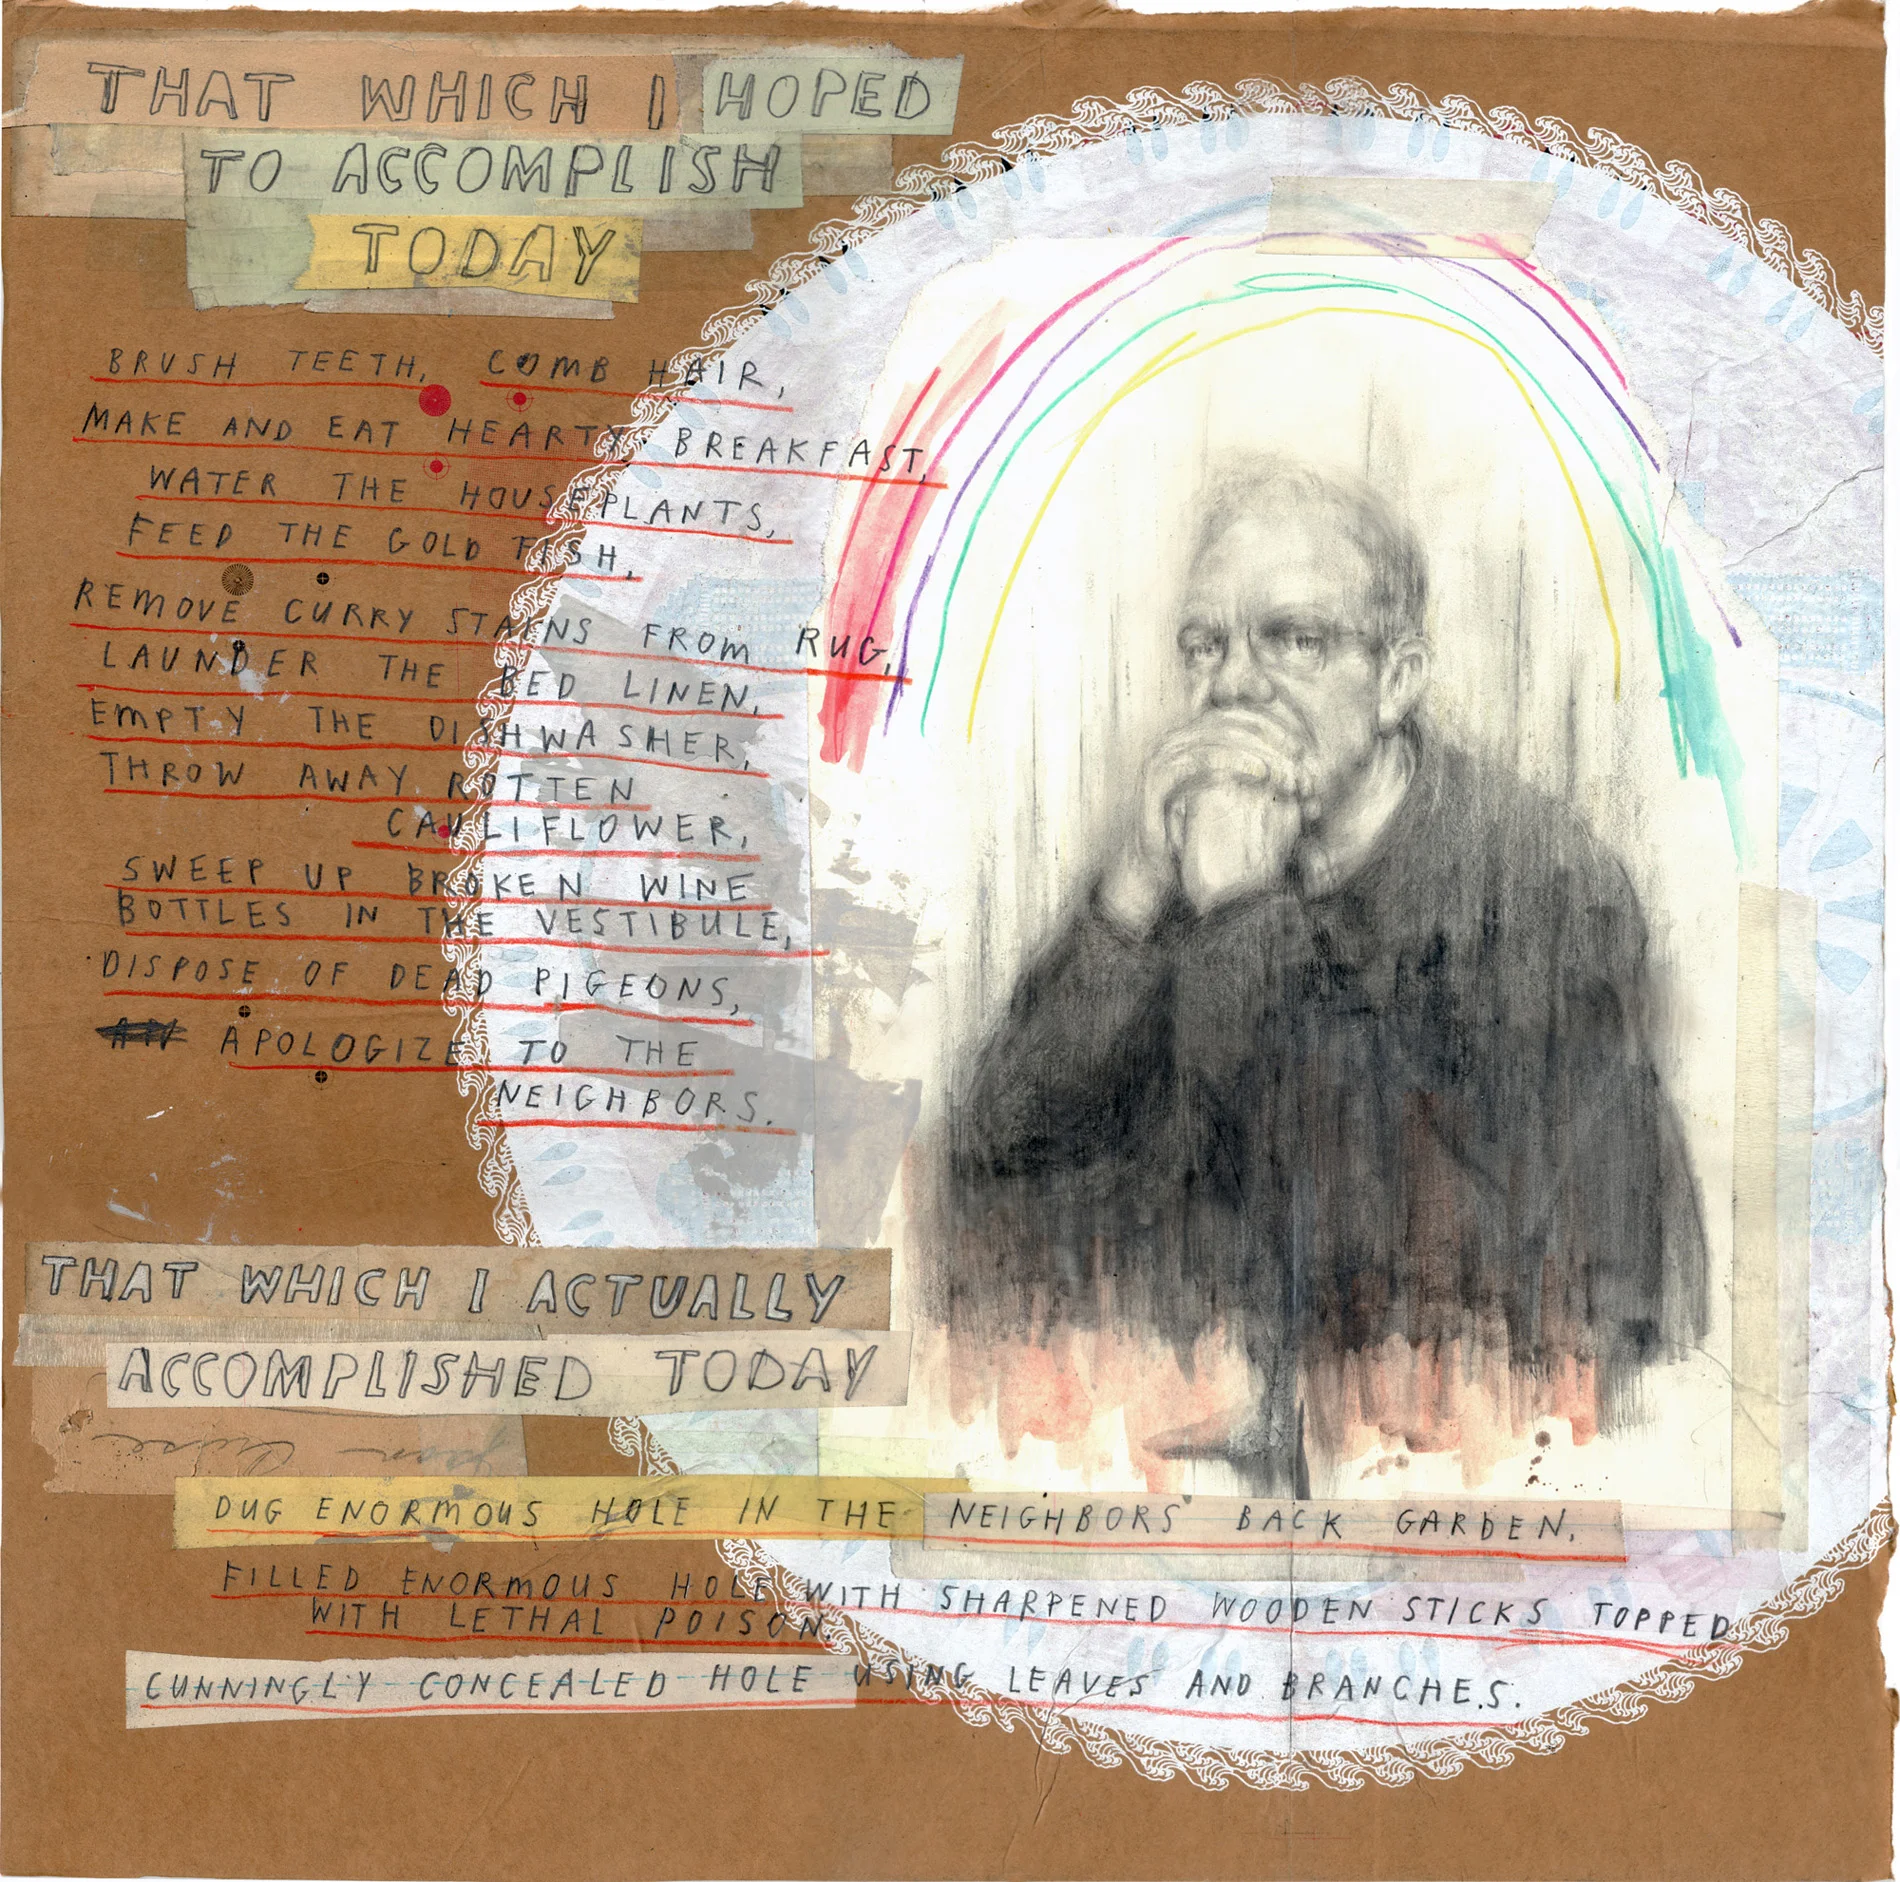 THAT WHICH I HOPED
TO ACCOMPLISH
TODAY
BRUSH TEETH, COMB HAIR,
MAKE AND EAT HEARTY BREAKFAST,
WATER THE HOUSEPLANTS,
FEED THE GOLD FISH,
REMOVE CURRY STAINS FROM RUG,
LAUNDER THE BED LINEN,
EMPTY THE DISHWASHER,
THROW AWAY ROTTEN
CAULIFLOWER,
SWEEP UP BROKEN WINE
BOTTLES IN THE VESTIBULE,
DISPOSE OF DEAD PIGEONS,
APOLOGIZE TO THE
NEIGHBORS.
THAT WHICH I ACTUALLY
ACCOMPLISHED TODAY
DUG ENORMOUS HOLE IN THE NEIGHBORS' BACK GARDEN.
FILLED ENORMOUS HOLE WITH SHARPENED WOODEN STICKS TOPPED
WITH LETHAL POISON.
CUNNINGLY CONCEALED HOLE USING LEAVES AND BRANCHES.